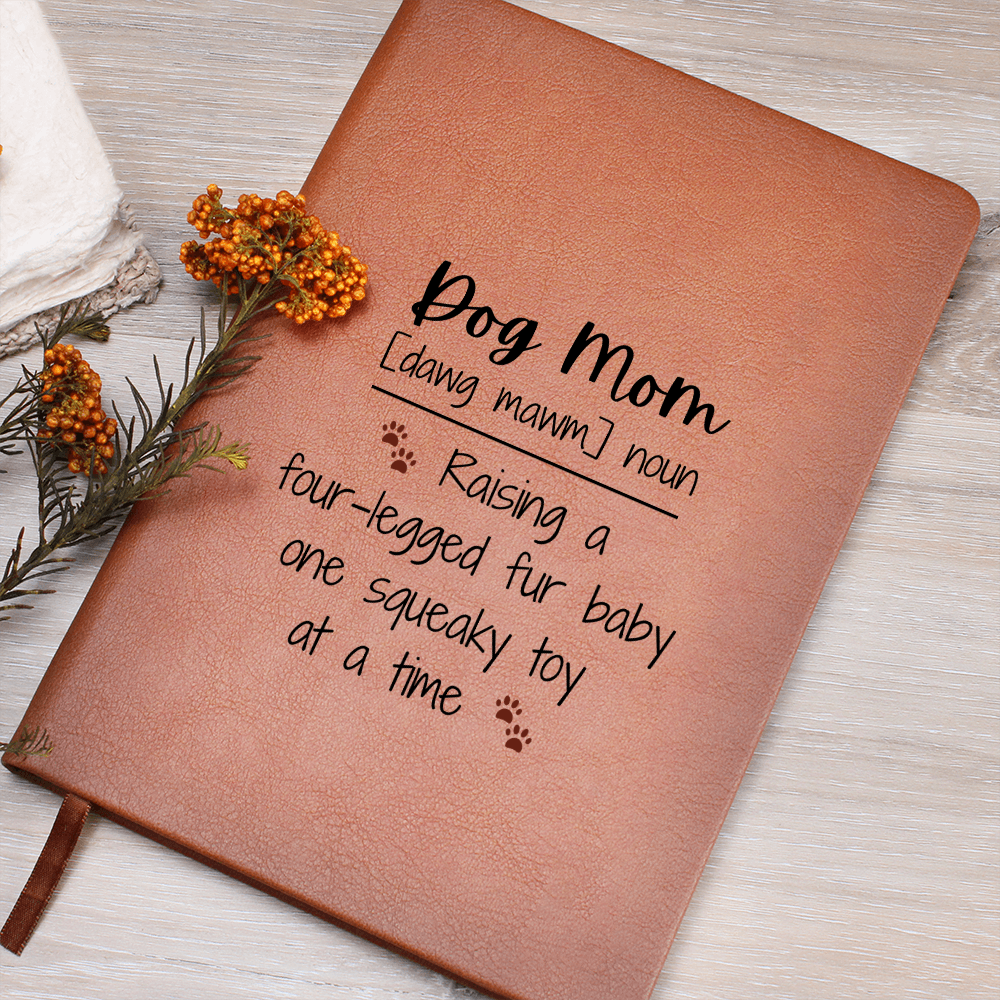 Dog Mom
[dawg mawm] noun
Raising a
four-legged fur baby
one squeaky toy
at a time